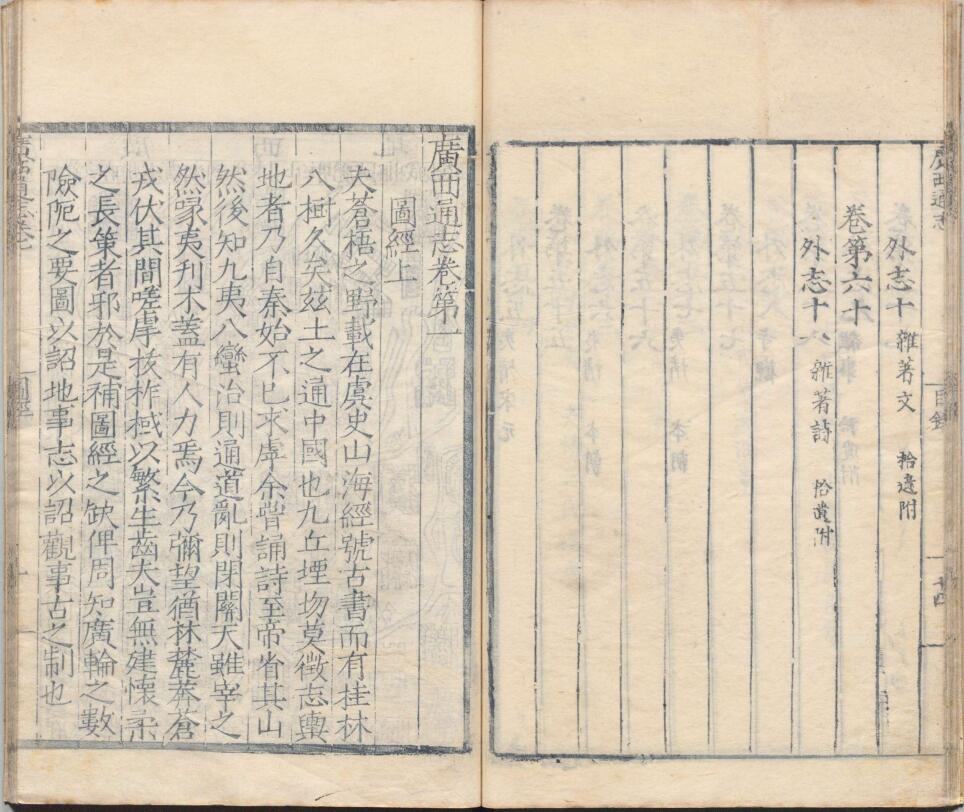 外志十 雜著文 拾遺附
卷第六十
外志十 雜著詩 拾遺附
目錄
廣西通志
廣西通志卷第一
圖經上
夫蒼梧之野載在虞史山海經號古書而有桂林
八樹久矣茲土之通中國也九丘堙圽莫徵志輿
地者乃自秦始不已來虖余嘗誦詩至帝省其山
然後知九夷八蠻治則通道亂則閉關天雖宰之
然喙夷刋木蓋有人力焉今乃彌望猶林麓莽蒼
戎伏其間嗟虖拔柞棫以繁生齒夫豈無建懷柔
之長策者邪於是補圖經之缺俾周知廣輪之數
險阨之要圖以詔地事志以詔觀事古之制也
圖經